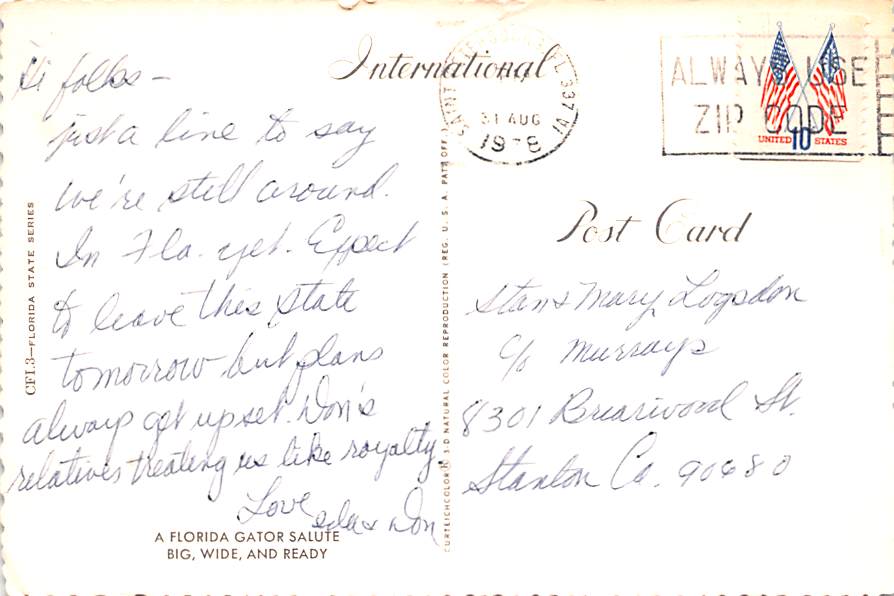 Hi folks –
just a line to say
we're still around.
In Fla. yet. Expect
to leave this state
tomorrow but plans
always get upset. Don's
relatives treating us like royalty
Love
& Don
A FLORIDA GATOR SALUTE
BIG, WIDE, AND READY
CFL3—FLORIDA STATE SERIES
CURTEICHCOLOR® 3-D NATURAL COLOR REPRODUCTION (REG. U. S. A. PAT. OFF.)
International
Post Card
SAINT PETERSBURG, FL 337
31 AUG
1978
ALWAYS USE
ZIP CODE
UNITED 10 STATES
Stan & Mary Logsdon
c/o Murrays
8301 Briarwood St.
Stanton Ca. 90680